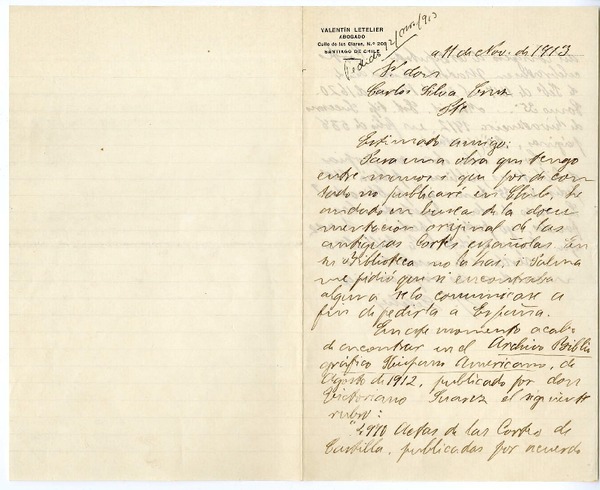 VALENTÍN LETELIER
ABOGADO
Calle de las Claras, N.º 208
SANTIAGO DE CHILE
Pedido 12/nov./913
a 11 de Nov. de 1913
Sr. don
Carlos Silva Cruz
Pte
Estimado amigo:
Para una obra que tengo
entre manos i que por de con
tado no publicaré en Chile, he
andado en busca de la docu
mentacion orijinal de las
antiguas Cortes españolas. En
su Biblioteca no la hai, i Salina
me pidió que si encontraba
alguna se lo comunicase a
fin de pedirla a España.
En este momento acabo
de encontrar en el Archivo Biblio
gráfico Hispano Americano, de
Agosto de 1912, publicado por don
Victoriano Suarez el siguiente
rubro:
Actas de las Cortes de
Castilla, publicadas por acuerdo